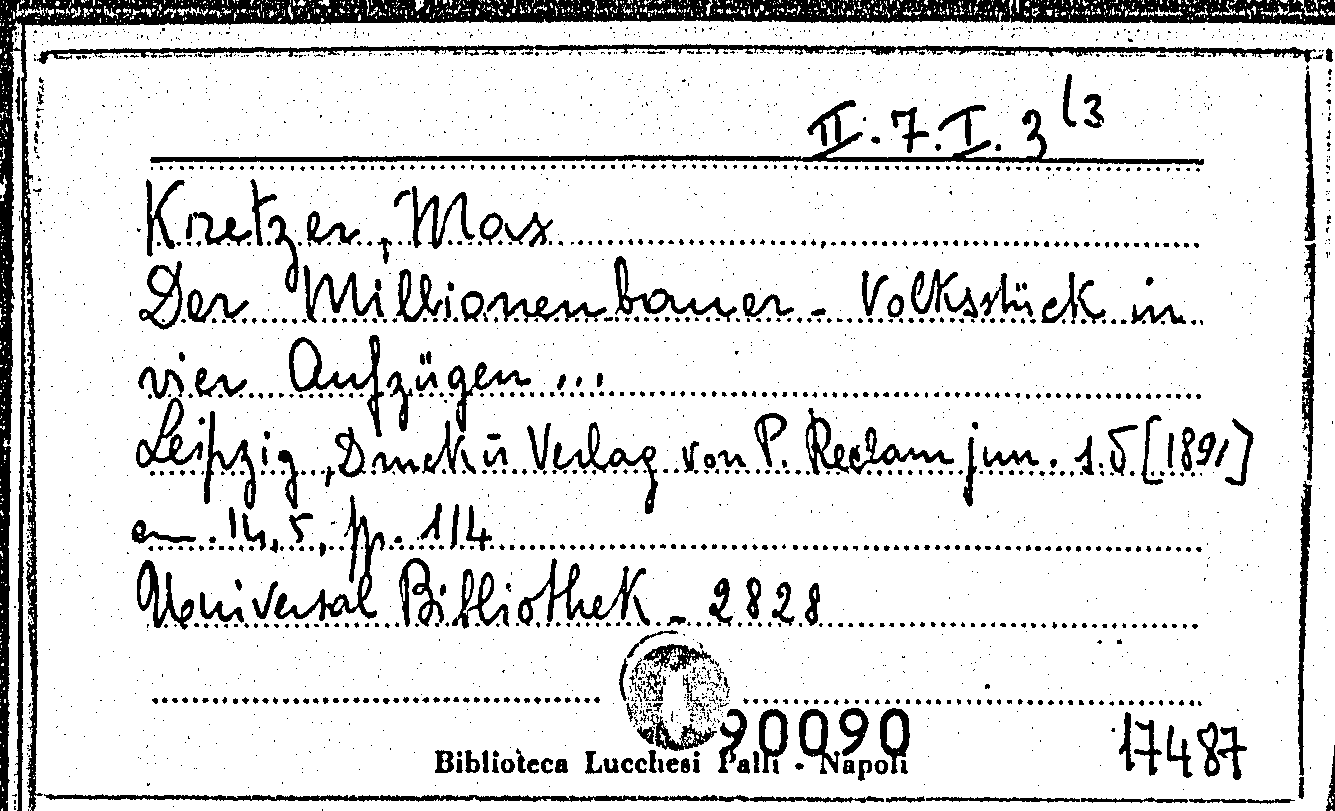 II. 7. I. 3 (3
Kretzer, Max
Der Millionenbauer - Volksstück in
vier Aufzügen ...
Leipzig, Druck u Verlag von P. Reclam jun. s.d [1891]
cm. 14,5, pp. 114
Universal Bibliothek - 2828
90090
17487
Biblioteca Lucchesi Palli - Napoli